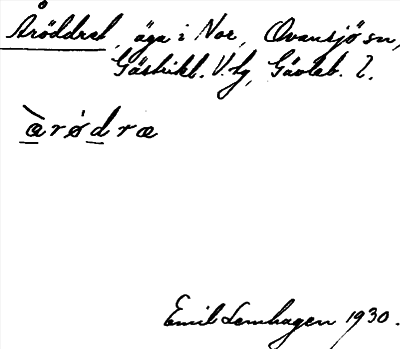 Åröddret, äga i Nor, Ovansjö sn,
Gästrikl. V. tg, Gävleb. l.
àrödræ
Emil Lemhagen 1930.